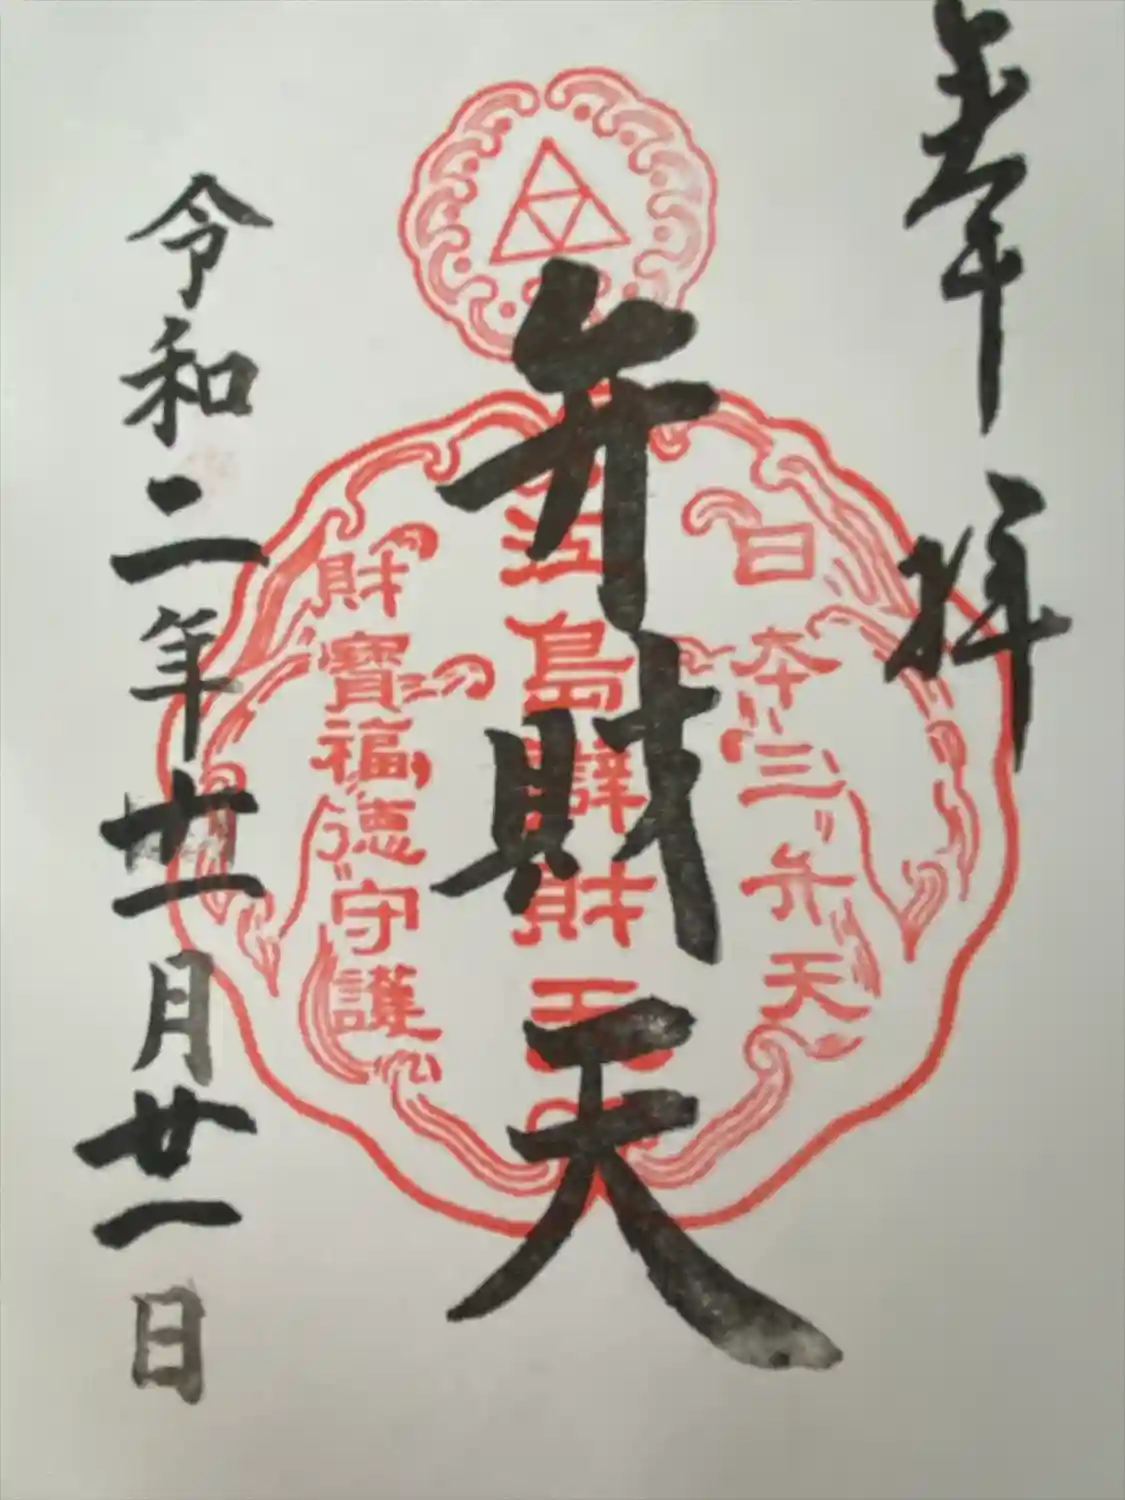 奉拝
日本三弁天
弁財天
江島辯財天
財寶福徳守護
令和二年十一月廿一日